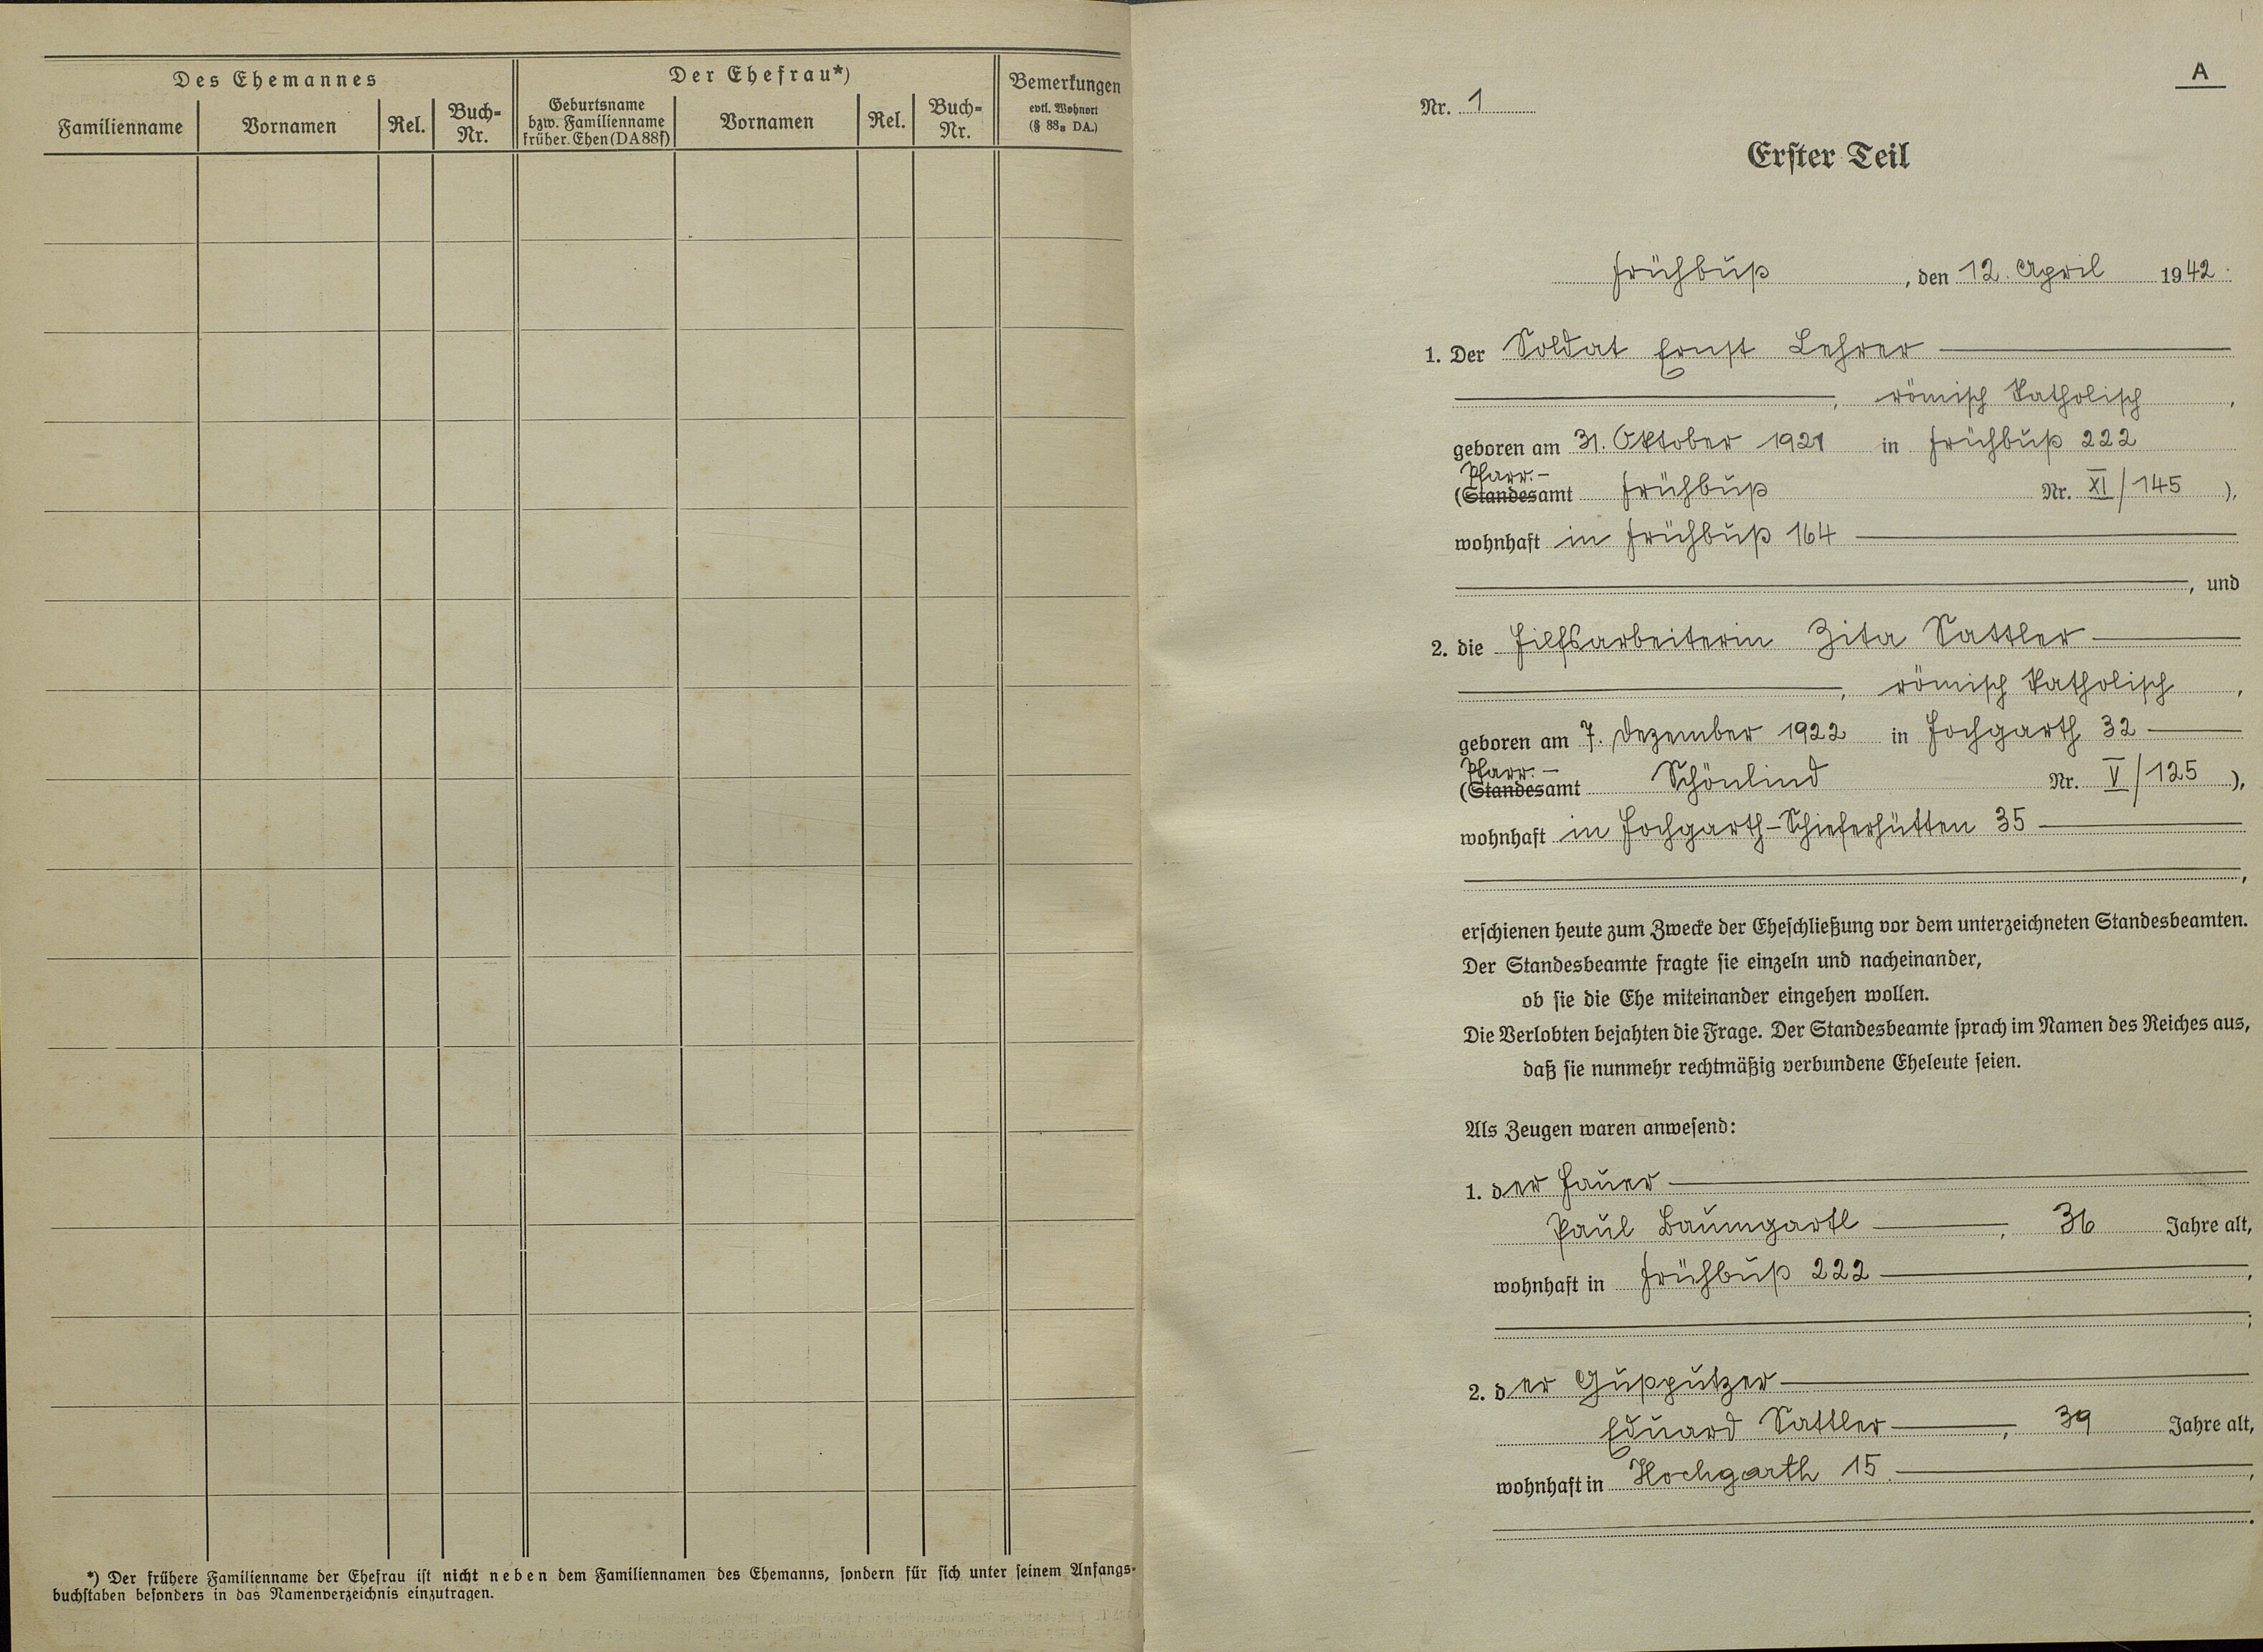 Des Ehemannes
Der Ehefrau*)
Bemerkungen
evtl. Wohnort
(§ 88₈ DA.)
Familienname
Vornamen
Rel.
Buch-
Nr.
Geburtsname
bzw. Familienname
früher. Ehen (DA 88f)
Vornamen
Rel.
Buch-
Nr.
*) Der frühere Familienname der Ehefrau ist nicht neben dem Familiennamen des Ehemanns, sondern für sich unter seinem Anfangs-
buchstaben besonders in das Namenverzeichnis einzutragen.
A
Nr. 1
Erster Teil
Frühbuß, den 12. April 1942.
1. Der Soldat Ernst Lehrer
, römisch katholisch,
geboren am 31. Oktober 1921 in Frühbuß 222
Pfarr.-
(Standesamt Frühbuß Nr. XI/145),
wohnhaft in Frühbuß 164
, und
2. die Hilfsarbeiterin Zita Sattler
, römisch katholisch,
geboren am 7. Dezember 1922 in Hochgarth 32
Pfarr.-
(Standesamt Schönlind Nr. V/125),
wohnhaft in Hochgarth-Schieferhütten 35
,
erschienen heute zum Zwecke der Eheschließung vor dem unterzeichneten Standesbeamten.
Der Standesbeamte fragte sie einzeln und nacheinander,
ob sie die Ehe miteinander eingehen wollen.
Die Verlobten bejahten die Frage. Der Standesbeamte sprach im Namen des Reiches aus,
daß sie nunmehr rechtmäßig verbundene Eheleute seien.
Als Zeugen waren anwesend:
1. der Hauer
Paul Baumgartl, 36 Jahre alt,
wohnhaft in Frühbuß 222,
;
2. der Gußputzer
Eduard Sattler, 39 Jahre alt,
wohnhaft in Hochgarth 15.,
.